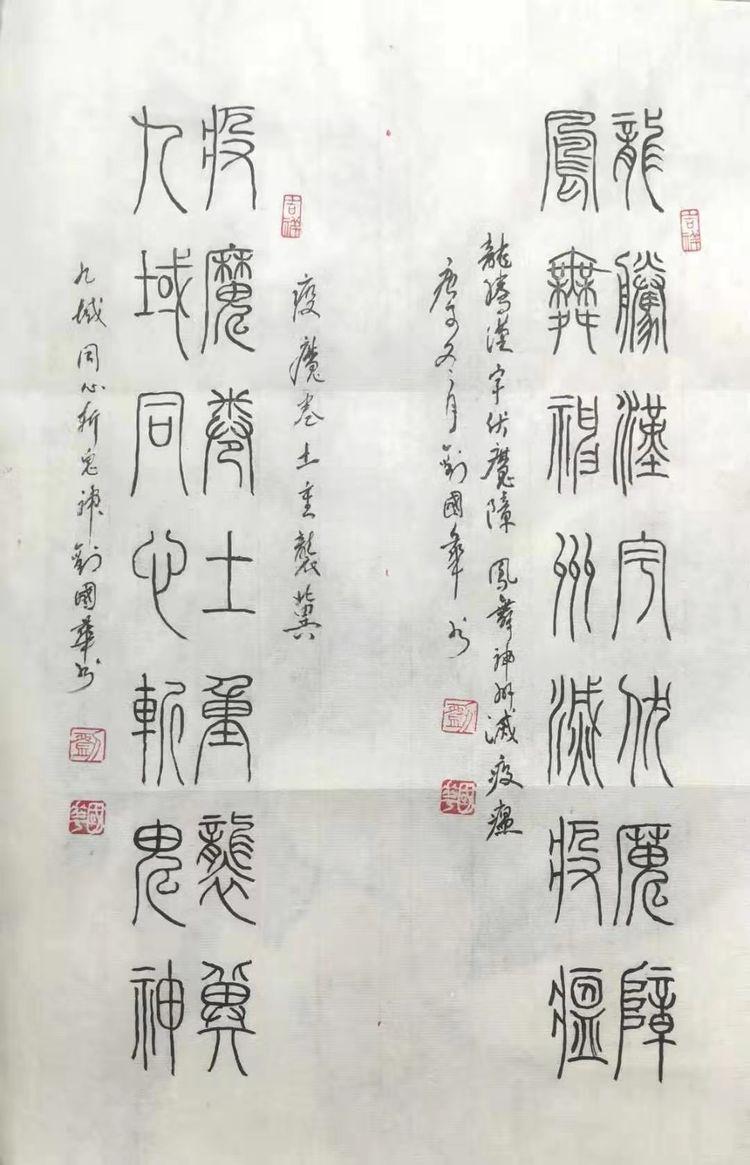 龍騰漢宇伏魔障
鳳舞神州滅疫瘟
吉祥
龍騰漢宇伏魔障 鳳舞神州滅疫瘟
庚子冬月劉國華书
劉
國華
疫魔卷土重襲冀
九域同心斬鬼神
吉祥
疫魔卷土重襲冀
九域同心斬鬼神 劉國華书
劉
國華